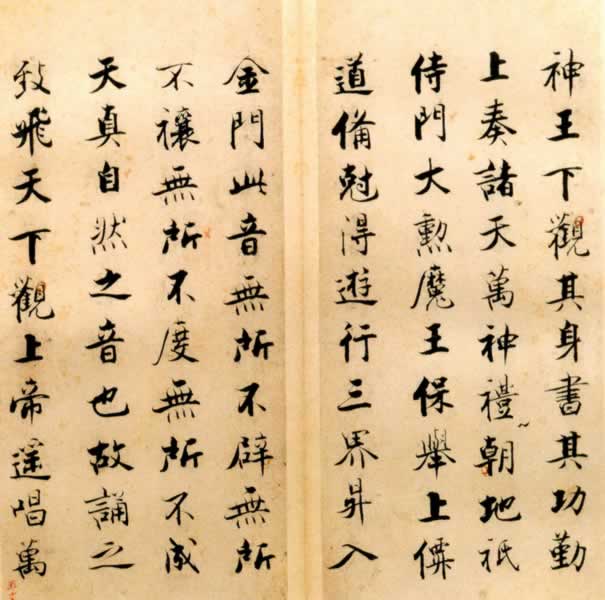 神王下觀其身書其功勤
上奏諸天萬神禮朝地祇
侍門大勲魔王保舉上僊
道備尅淂遊行三界昇入
金門此音無所不辟無所
不禳無所不度無所不成
天真自然之音也故誦之
致飛天下觀上帝遥唱萬